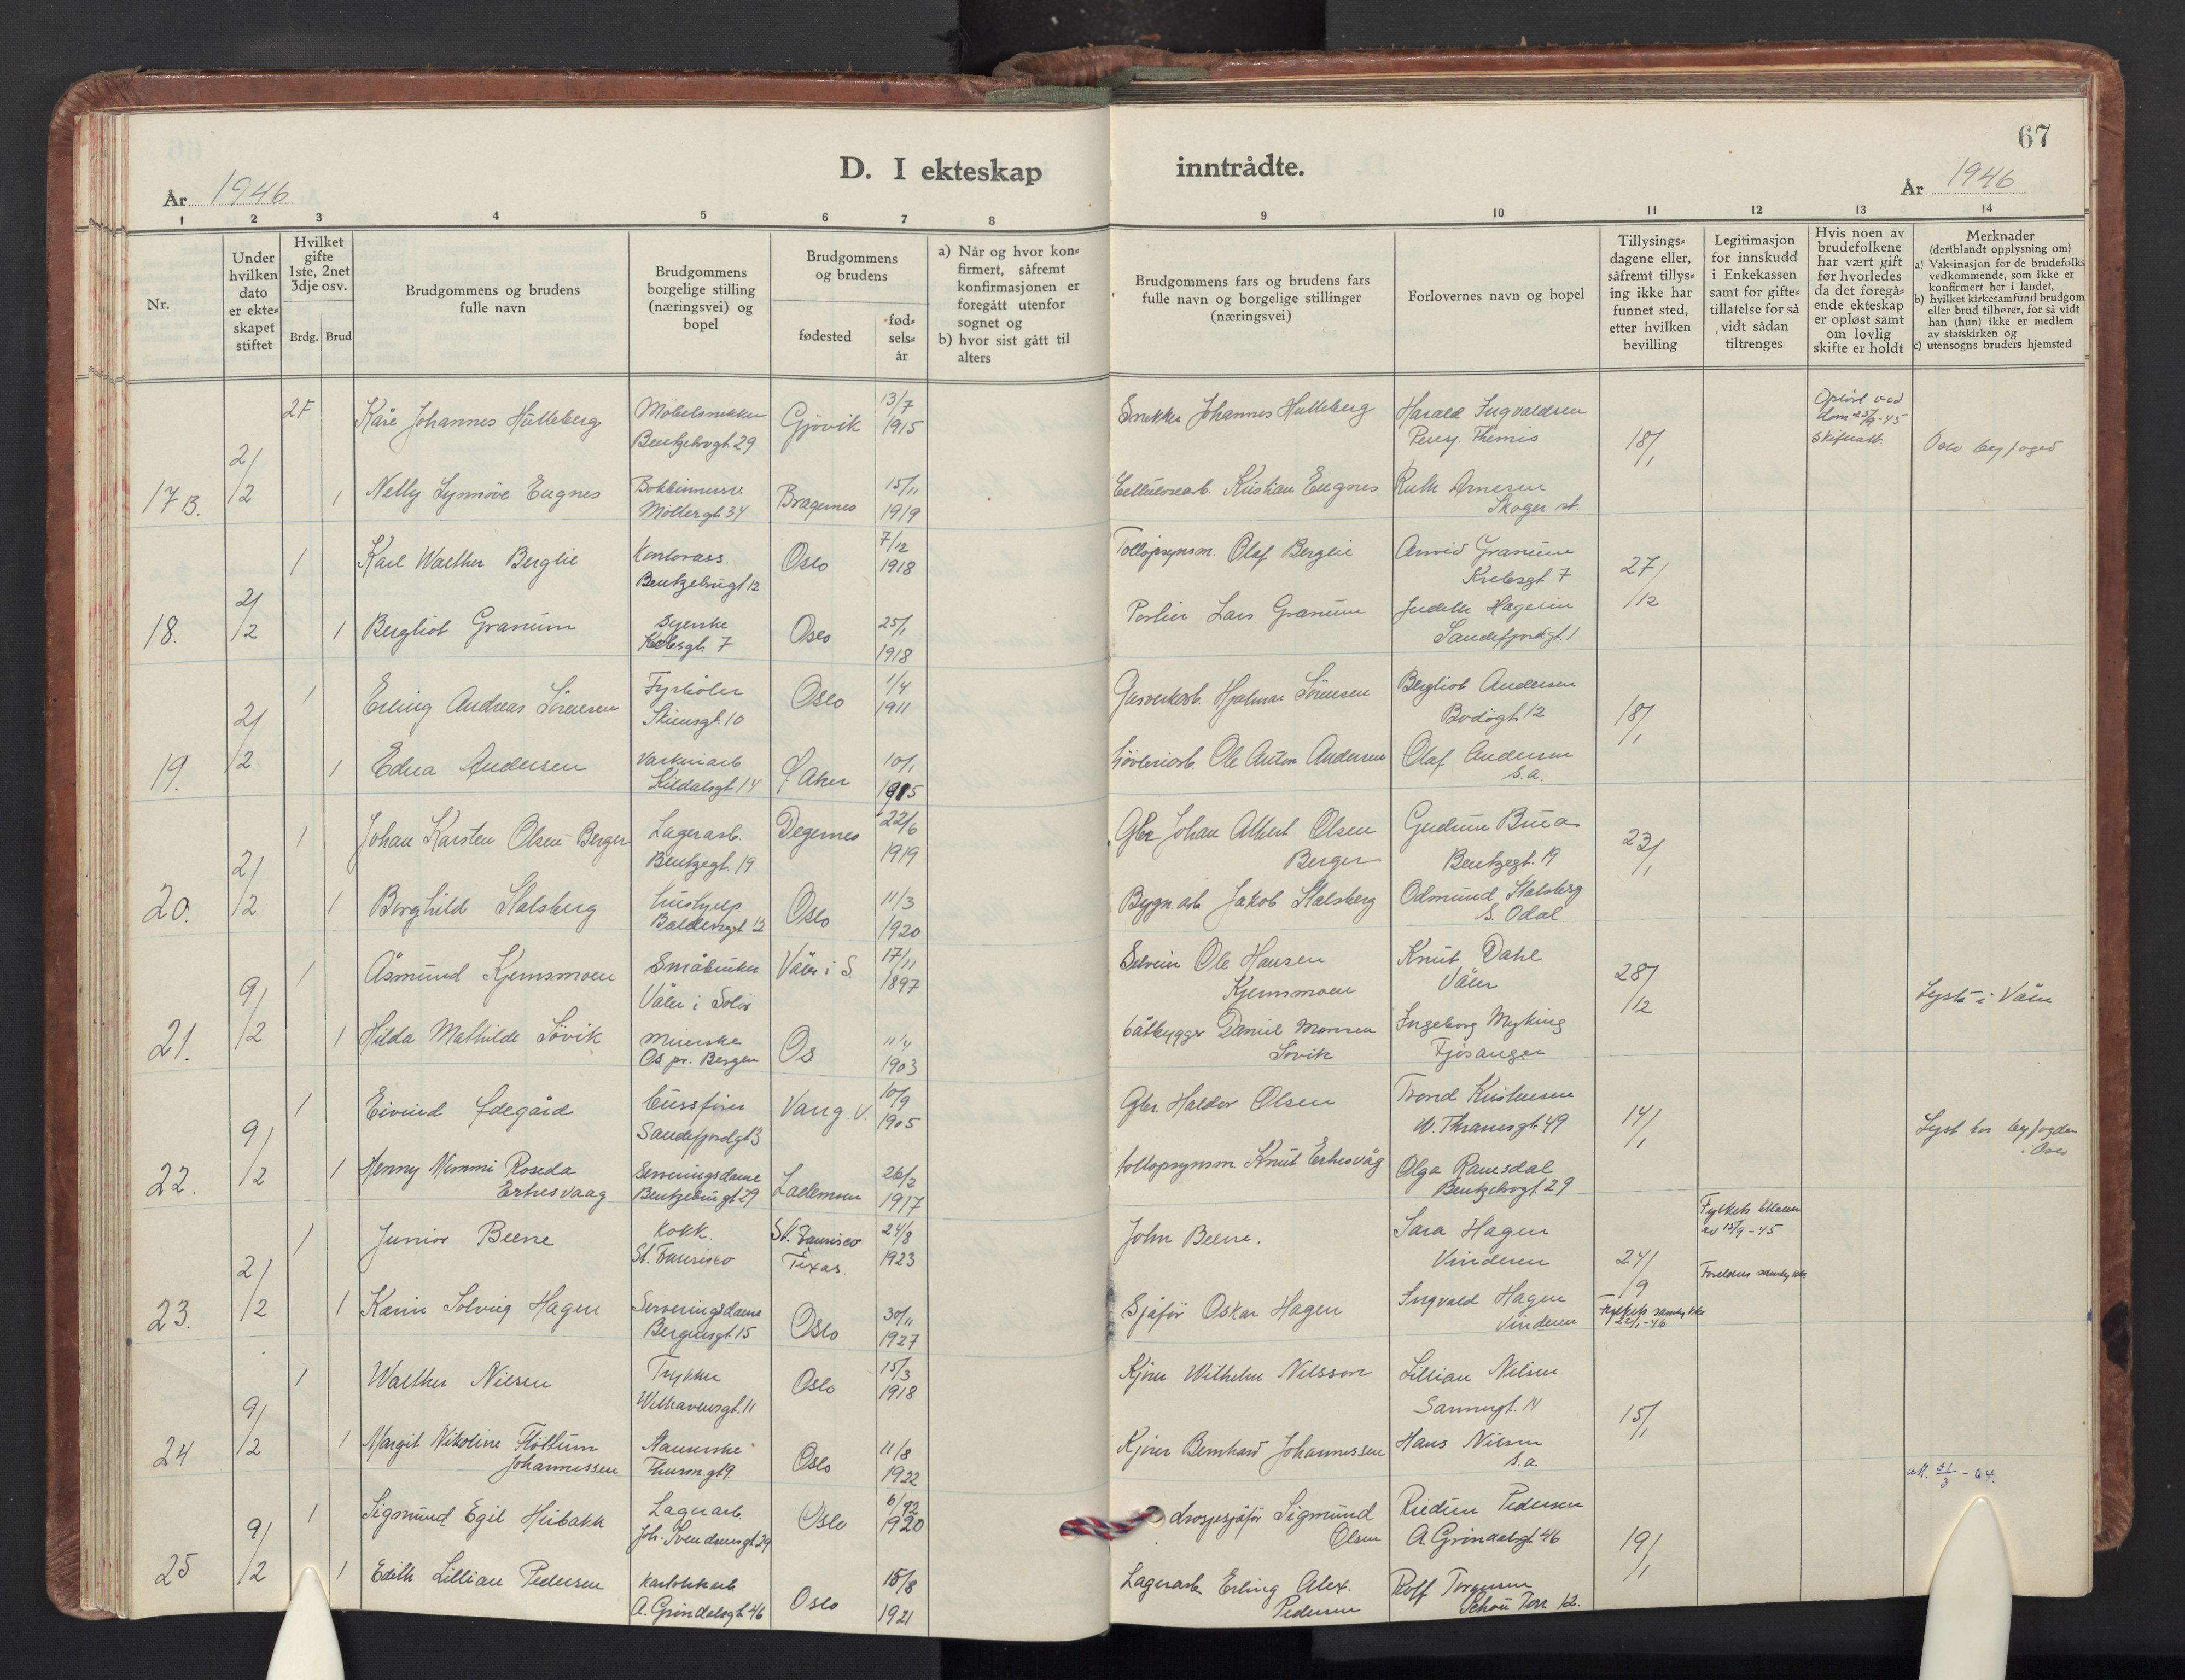 67
D. I ekteskap inntrådte.
År 1946
År 1946
1 2 3 4 5 6 7 8 9 10 11 12 13 14
Nr.
Under hvilken dato er ekteskapet stiftet
Hvilket gifte 1ste, 2net 3dje osv.
Brdg. Brud
Brudgommens og brudens fulle navn
Brudgommens borgelige stilling (næringsvei) og bopel
Brudgommens og brudens
fødested
fødselsår
a) Når og hvor konfirmert, såfremt konfirmasjonen er foregått utenfor sognet og
b) hvor sist gått til alters
Brudgommens fars og brudens fars fulle navn og borgelige stillinger (næringsvei)
Forlovernes navn og bopel
Tillysingsdagene eller, såfremt tillysing ikke har funnet sted, etter hvilken bevilling
Legitimasjon for innskudd i Enkekassen samt for giftetillatelse for så vidt sådan tiltrenges
Hvis noen av brudefolkene har vært gift før hvorledes da det foregående ekteskap er opløst samt om lovlig skifte er holdt
Merknader (deriblandt opplysning om)
a) Vaksinasjon for de brudefolks vedkommende, som ikke er konfirmert her i landet,
b) hvilket kirkesamfund brudgom eller brud tilhører, for så vidt han (hun) ikke er medlem av statskirken og
c) utensogns bruders hjemsted
17 B. 2/2 2F Kåre Johannes Hulleberg Møbelsnekker Gjøvik 13/7 Snekker Johannes Hulleberg Harald Ingvaldsen 18/1 Oppløst ved
Bentzebrugt 29 1915 Pensj. Themis dom 25/9-45
Skifteatt. Oslo byfoged
1 Nelly Synnøve Eugnes Bragernes 15/11 Cellulosearb. Kristian Eugnes Ruth Arnesen
Møllergt 34 1919 Skoger st.
18. 2/2 1 Karl Walther Berglie Kontorass. Oslo 7/12 Tollopsynsm. Olaf Berglie Arvid Granum 27/12
Bentzebrugt 12 1918 Krebsgt 7
1 Bergliot Granum Syerske Oslo 25/1 Portier Lars Granum Judith Hagelin
Krebsgt. 7 1918 Sandefjordgt 1
19. 2/2 1 Erling Andreas Sørensen Fyrbøter Oslo 1/4 Gasverksarb. Hjalmar Sørensen Bergliot Andersen 18/1
Skiensgt. 10 1911 Bodøgt 12
1 Edna Andersen Vaskeriarb Ø. Aker 10/1 Høvleriarb. Ole Anton Andersen Olaf Andersen
Kildalsgt 14 1915 s.a.
20. 2/2 1 Johan Karsten Olsen Berger Lagerarb. Degernes 22/6 Gbr Johan Albert Olsen Gudrun Brua 23/1
Bentzegt. 19 1919 Berger Bentzegt. 19
1 Borghild Stalsberg Hushjelp Oslo 11/3 Bygn.arb Jakob Stalsberg Odmund Stalsberg
Baldersgt 12 1920 S. Odal
21. 9/2 1 Åsmund Kjemsmoen Småbruker Våler i S. 17/11 Selveier Ole Hansen Knut Dahl 28/12
Våler i Solør 1897 Kjemsmoen Våler Lyst i Våler
1 Hilda Mathilde Søvik Meierske Os 11/4 båtbygger Daniel Monsen Ingeborg Myking
Os pr. Bergen 1903 Søvik Fjøsanger
22. 9/2 1 Eivind Ødegård Bussfører Vang. V. 10/9 Gbr. Haldor Olsen Trond Kristensen 14/1
Sandefjordgt 3 1905 M. Thranesgt. 49 Lyst hos byfogden i Oslo
1 Henny Nimmi Roseda Serveringsdame Lademoen 26/2 tollopsynsm. Knut Erkesvåg Olga Ramsdal
Erkesvaag Bentzebrugt 29 1917 Bentzebrugt. 29
23. 2/2 1 Junior Beene Kokk. St. Francisco 24/8 John Beene. Sara Hagen 24/9
St. Francisco Texas. 1923 Vinderen av 15/9-45
1 Karin Solveig Hagen Serveringsdame Oslo 30/11 Sjåfør Oskar Hagen Ingvald Hagen Fylkets samtykke 22/1-46 Foreldres samtykke
Bergensgt. 15 1927 Vinderen
24 9/2 1 Walther Nilsen Trykker Oslo 15/3 Kjører Wilhelm Nilsson Lillian Nilsen 15/1
Welhavensgt. 11 1918 Sannergt. 14
1 Margit Nikoline Fløttum Oslo 11/8 Kjører Bernhard Johannessen Hans Nilsen
Johannessen Thurm.gt 9. 1922 s.a.
att. 31/3 - 64.
25 9/2 1 Sigmund Egil Heibakk Lagerarb. Oslo 6/12 drosjesjåfør Sigmund Reidun Pedersen 19/1
Joh. Svendsensgt. 29 1920 Olsen A. Grindalsgt 46
1 Edith Lillian Pedersen Oslo 15/8 Lagerarb Erling Alex. Rolf Torgersen
A. Grindalsgt 46 1921 Pedersen Schous Terr. 12.